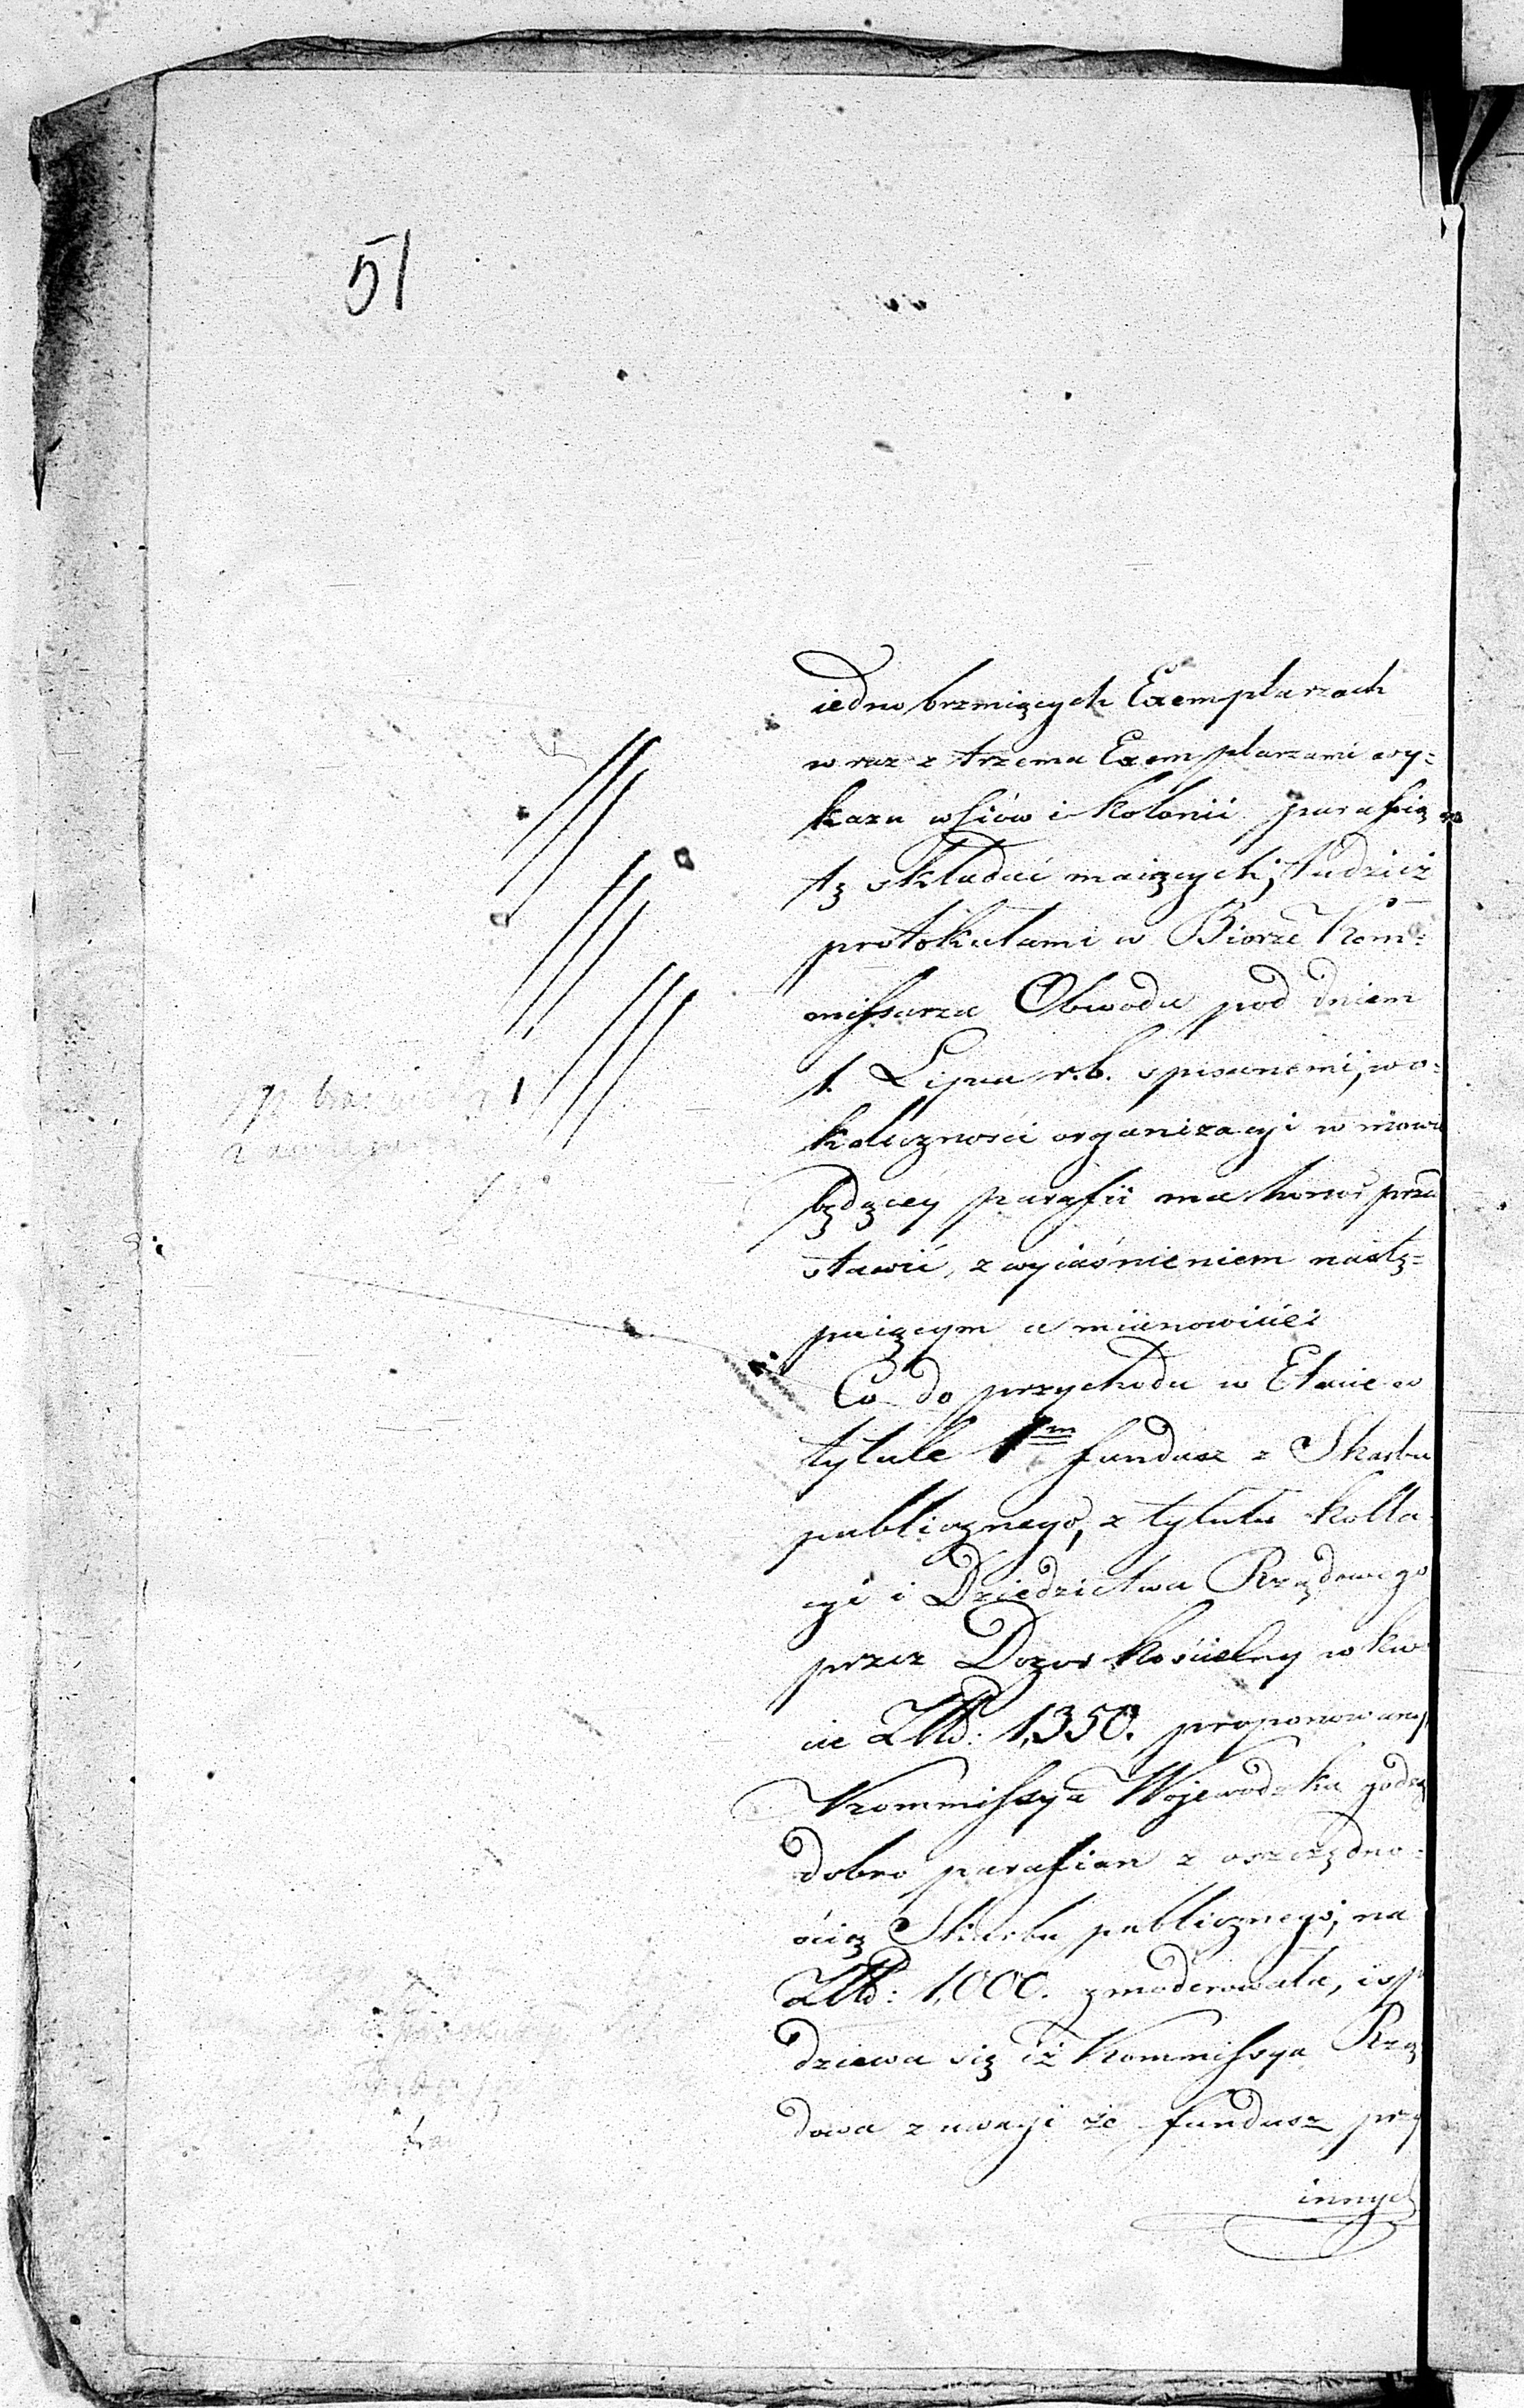 51
iedno brzmiących Exemplarzach
wraz z trzema Exemplarzami wy=
kazu wsiów i kolonii parafią
tę składać maiących, tudzież
protokułami w Biorze Kom=
missarza Obwodu pod dniem
1. Lipca r.b. spisanemi, w o=
koliczności organizacyi w mowie
będącey parafii ma honor prze
stawić, z wyiaśnieniem nastę=
puiącym a mianowicie:
Co do przychodu w Etacie w
tytule 1m fundusz z Skarbu
publicznego, z tytułu kolla
cyi i Dziedzictwa Rządowego
przez Dozor kościelny w kwo
cie Złłd: 1,350. proponowany,
Kommissya Wojewodzka godząc
dobro parafian z oszczędno=
ścią Skarbu publicznego, na
Złłd: 1,000. zmoderowała, i sp
dziewa się iż Kommissya Rzą
dowa z uwagi że fundusz przy
innych